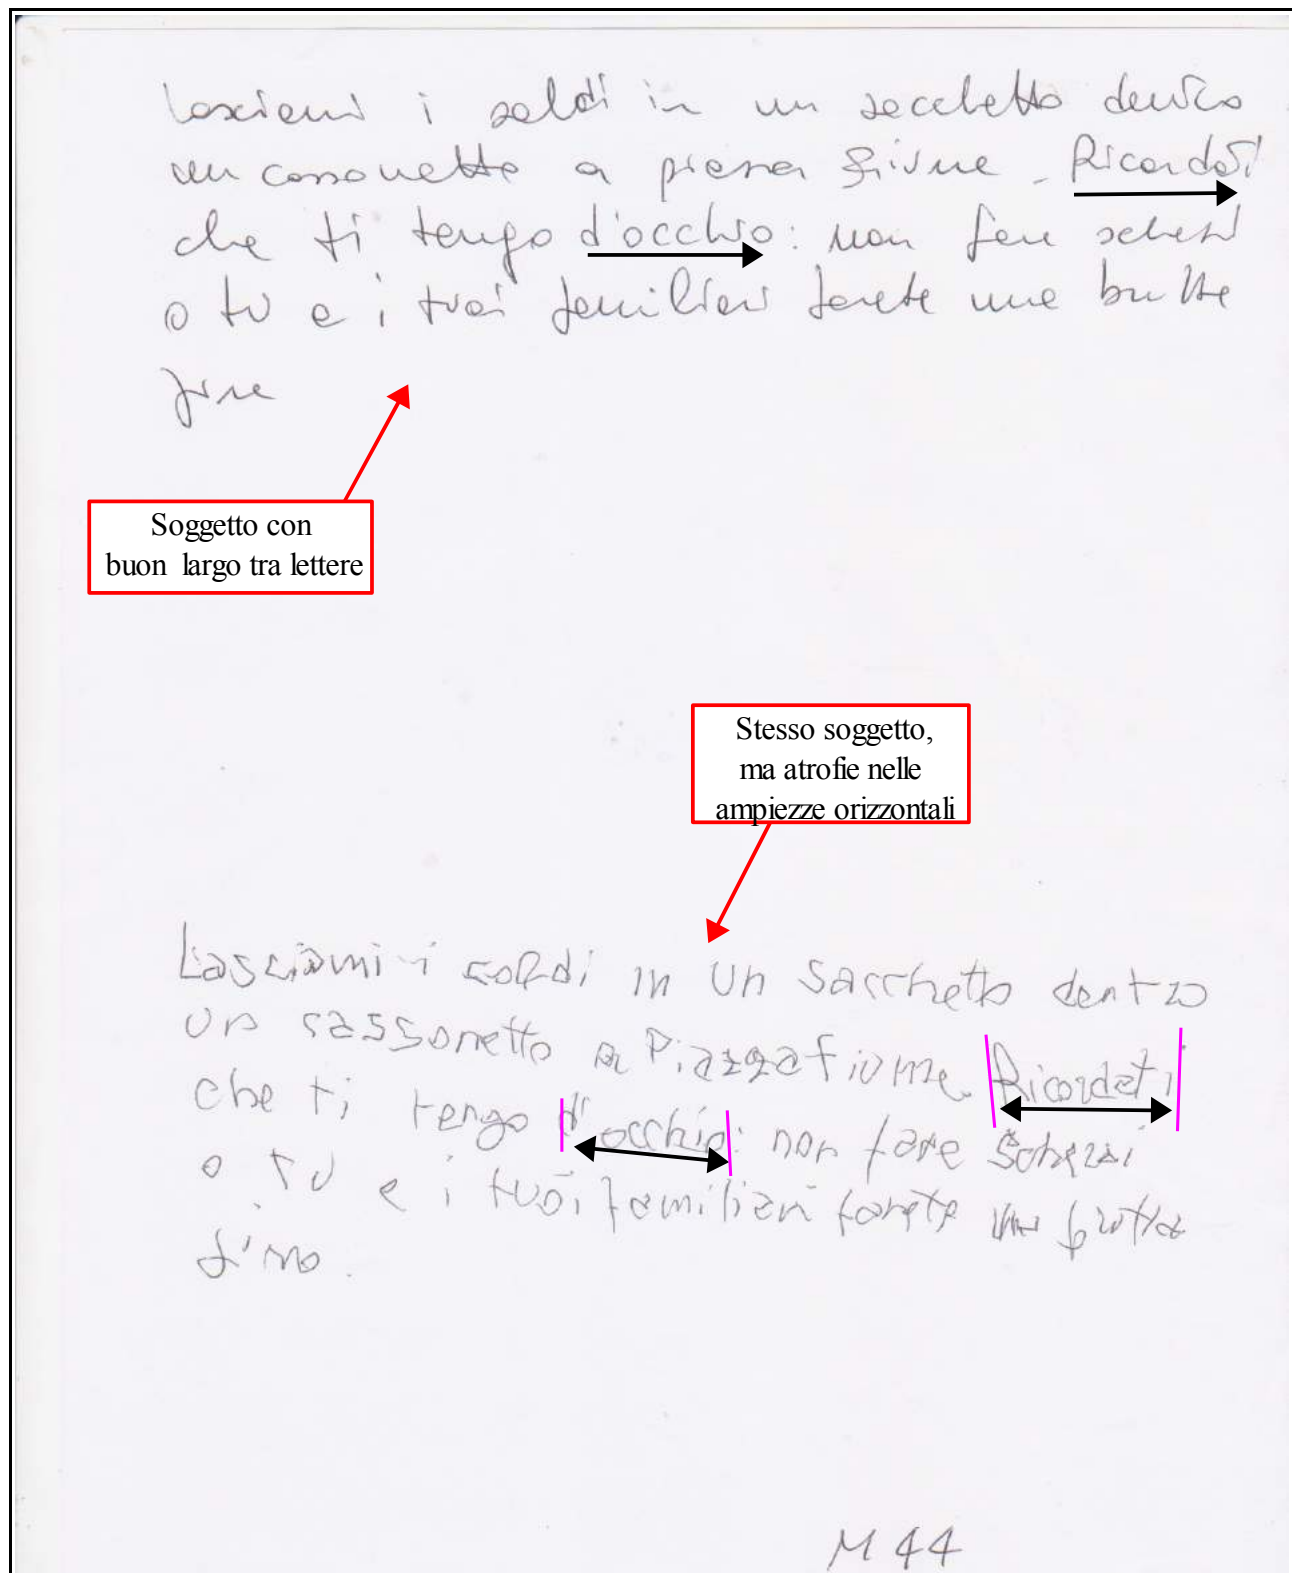 Lasciami i soldi in un sacchetto dentro
un cassonetto a piazza Fiume. Ricordati
che ti tengo d'occhio: non fare scherzi
o tu e i tuoi familiari farete una brutta
fine
Soggetto con
buon largo tra lettere
Stesso soggetto,
ma atrofie nelle
ampiezze orizzontali
Lasciami i soldi in un sacchetto dentro
un cassonetto a Piazza fiume. Ricordati
che ti tengo d'occhio: non fare scherzi
o tu e i tuoi familiari farete una brutta
fine.
M 44